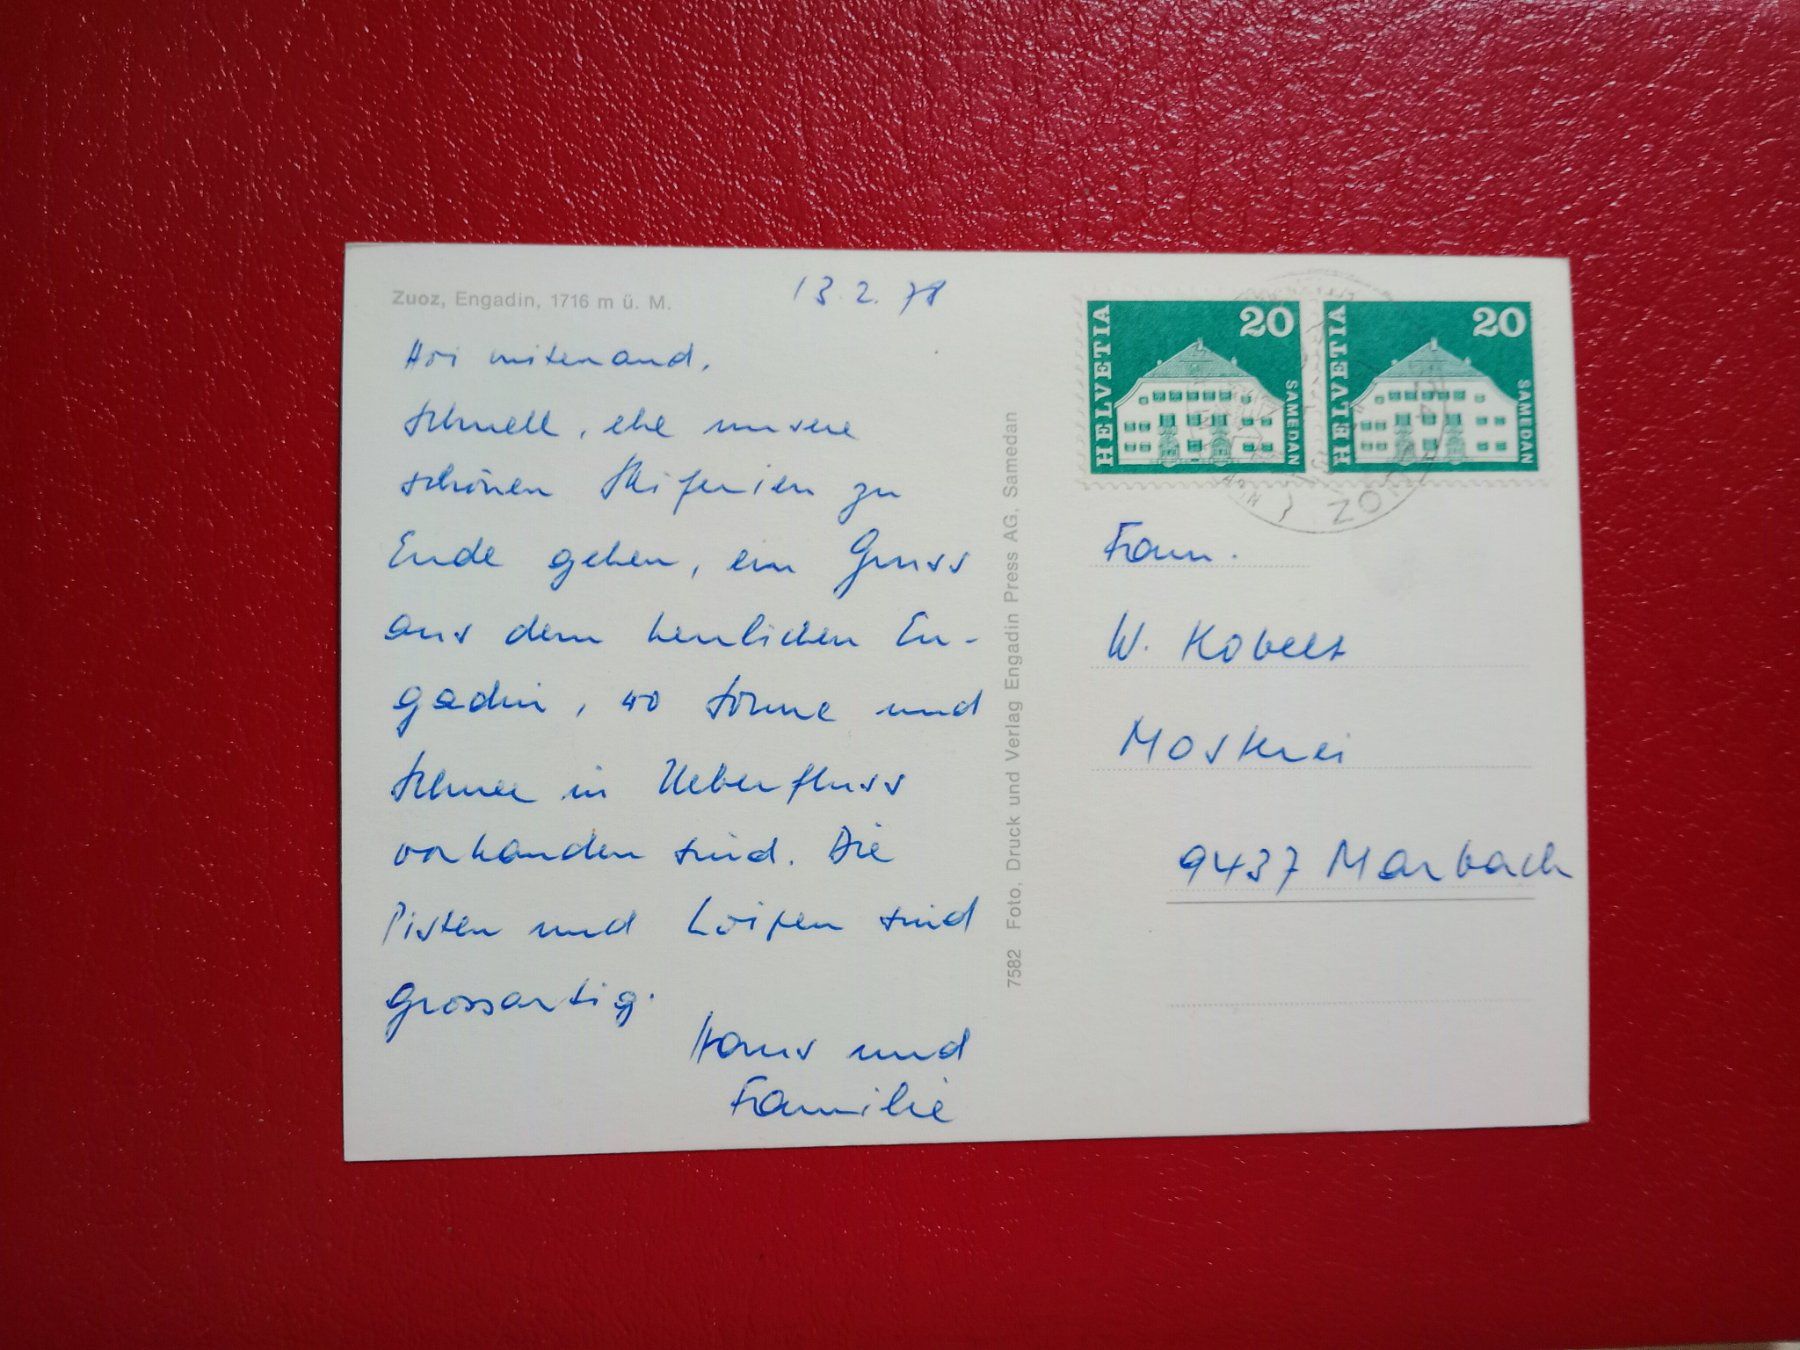 Zuoz, Engadin, 1716 m ü. M.
13.2.78
Hoi mitenand,
schnell, ehe unsere
schönen Skiferien zu
Ende gehen, ein Gruss
aus dem herrlichen En-
gadin, wo Sonne und
Schnee in Ueberfluss
vorhanden sind. Die
Pisten und Loipen sind
grossartig.
Hans und
Familie
7582 Foto, Druck und Verlag Engadin Press AG, Samedan
HELVETIA 20 SAMEDAN
HELVETIA 20 SAMEDAN
Fam.
W. Kobelt
Mosterei
9437 Marbach